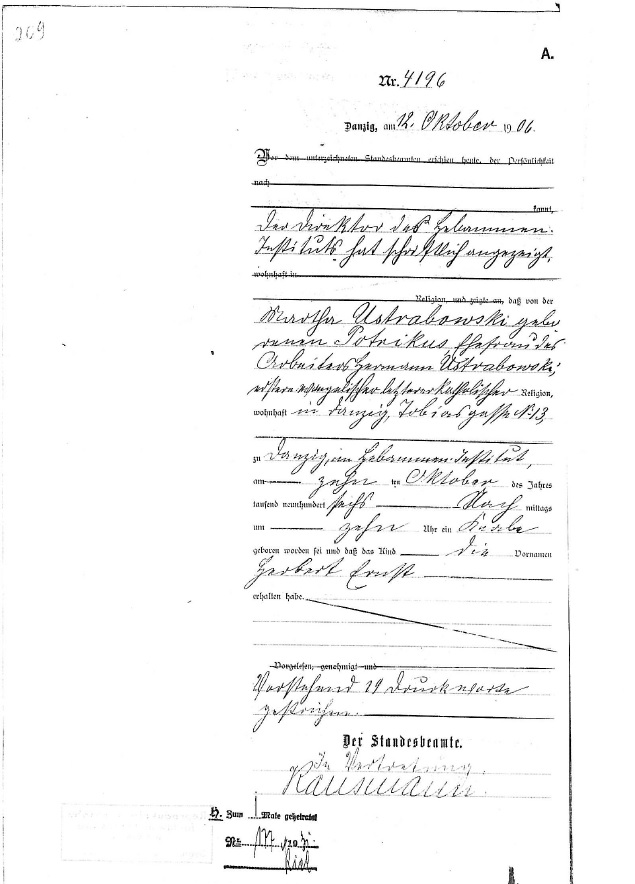 269
A.
Nr. 4196
Danzig, am 12. Oktober 1906.
Vor dem unterzeichneten Standesbeamten erschien heute, der Persönlichkeit
nach
kannt,
Der Direktor des Hebammen-
Instituts hat schriftlich angezeigt,
wohnhaft in
Religion, und zeigte an, daß von der
Martha Ustrabowski gebo
renen Potrikus Ehefrau des
Arbeiters Hermann Ustrabowski,
erstere evangelischer letzterer katholischer Religion,
wohnhaft in Danzig, Tobiasgasse N. 13,
zu Danzig, im Hebammen-Institut,
am zehn ten Oktober des Jahres
tausend neunhundert sechs Nach mittags
um zehn Uhr ein Knabe
geboren worden sei und daß das Kind die Vornamen
Herbert Ernst
erhalten habe.
Vorgelesen, genehmigt und
Vorstehend 19 Druckworte
gestrichen.
Der Standesbeamte.
In Vertretung.
H. Zum 1 Male geheiratet
Nr. 177